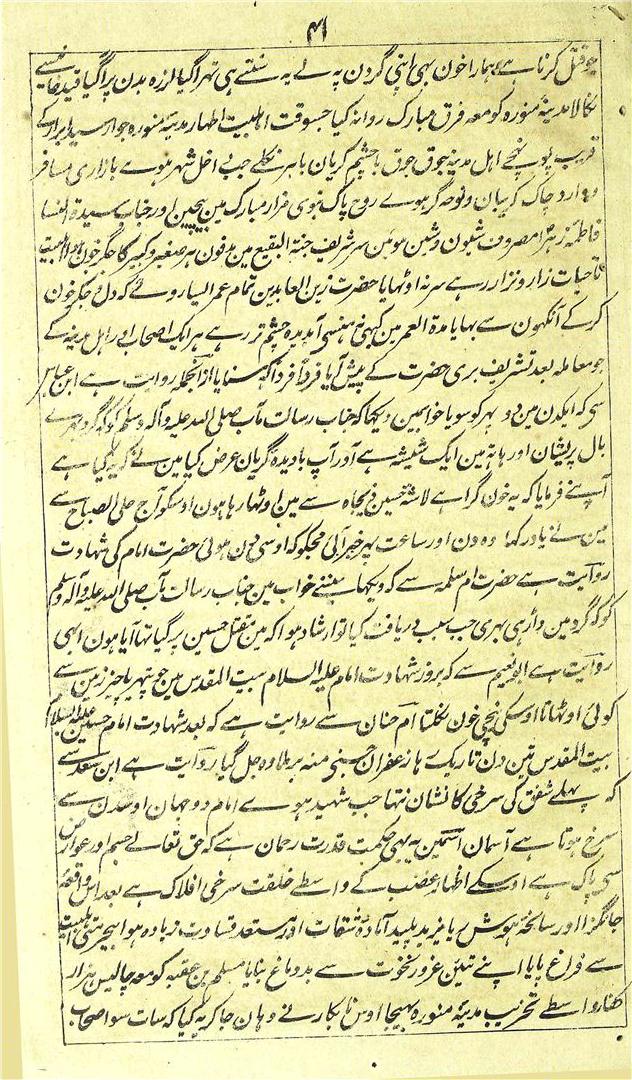 ۴۱
جو قتل کرتا ہے ہمارا خون بہی اپنی گردن پہ لے یہ سنتے ہی تہرا گیا لرزہ بدن پر آگیا قید خانیسے
نکالا مدینۂ منورہ کو معہ فرق مبارک روانہ کیا جسوقت اہلبیت اطہار مدینۂ منورہ جوار سید ابرار کے
قریب پہونچے اہل مدینہ جوق جوق با چشم گریان باہر نکلے جب داخل شہر ہوے بازاری مسافر
و وارد چاک گریبان و نوحہ گر ہوے روح پاک نبوی مزار مبارک مین بیچین اور جناب سیدۃ النسا
فاطمۂ زہرا مصروف شیون و شین ہوین سر شریف جنۃ البقیع مین مدفون ہر صغیر و کبیر کا جگر خون ہوا اہلبیت
تاحیات زار و نزار رہے سر نہ اوٹہایا حضرت زین العابدین تمام عمر السیا روئے کہ دل و جگر خون
کر کے آنکہون سے بہایا مدۃ العمر مین کبہی نہ ہنسی آمدیدہ چشم تر رہے ہر ایک اصحاب اور اہل مدینہ کے
جو معاملہ بعد تشریف بری حضرت کے پیش آیا فرداً فرداً کہہ سنایا ازانجملہ روایت ہے ابن عباس
سی کہ ایکدن مین دو پہر کو سویا خوابمین دیکہا کہ جناب رسالت مآب صلی اللہ علیہ وآلہ وسلم کو کہ گرد بہرے
بال پریشان اور ہاتہ مین ایک شیشہ ہے آور آپ بادیدۂ گریان عرض کیا مین نے کہ یہ کیا ہے
آپنے فرمایا کہ یہ خون گرا ہے لاشۂ حسین ذیجاہ سے مین اوٹہا رہا ہون اوسکو آج علی الصباح سے
مین نے یاد رکہا وہ دن اور ساعت پہر خبر آئی مجکو کہ اوسی دن ہوئی حضرت امام کی شہادت
روآیت ہے حضرت ام سلمہ سے کہ دیکہا مینے خواب مین جناب رسالت مآب صلی اللہ علیہ وآلہ وسلم
کو کہ گرد مین داڑہی بہری جب سبب دریافت کیا تو ارشاد ہوا کہ مین مقتل حسین پر گیا تہا آیا ہون ابہی
روآیت ہے ابو نعیم سے کہ بروز شہادت امام علیہ السلام بیت المقدس مین جو پتہر یا چیز زمین سے
کوئی اوٹہاتا اوسکی نیچی خون نکلتا ام حنان سے روایت ہے کہ بعد شہادت امام حسین علیہ السلام
بیت المقدس تین دن تاریک رہا زعفران جسنی منہ پر ملا وہ جل گیا روآیت ہے ابن سعد سے
کہ پہلے شفق کی سرخی کا نشان نتہا جب شہید ہوے امام دو جہان اوسدن سے
سرخ ہوتا ہے آسمان اسمین یہ بہی حکمت قدرت رحمان ہے کہ حق تعالے جسم اور عوارض
سی پاک ہے اوسکے اظہار غضب کے واسطے خلقت سرخی افلاک ہے بعد اس واقعۂ
جانگزا اور سانحۂ ہوش ربا یزید پلید آمادۂ شقات اور مستعد قساوت زیادہ ہوا بیحرمتی اہلبیت
سے فراغ پایا اپنے تئین غرور نخوت سے بد دماغ بنایا مسلم بن عقبہ کو معہ چالیس ہزار
کفار واسطے تخریب مدینۂ منورہ بہیجا اوس نابکار نے وہان جا کر یہ کیا کہ سات سو اصحاب